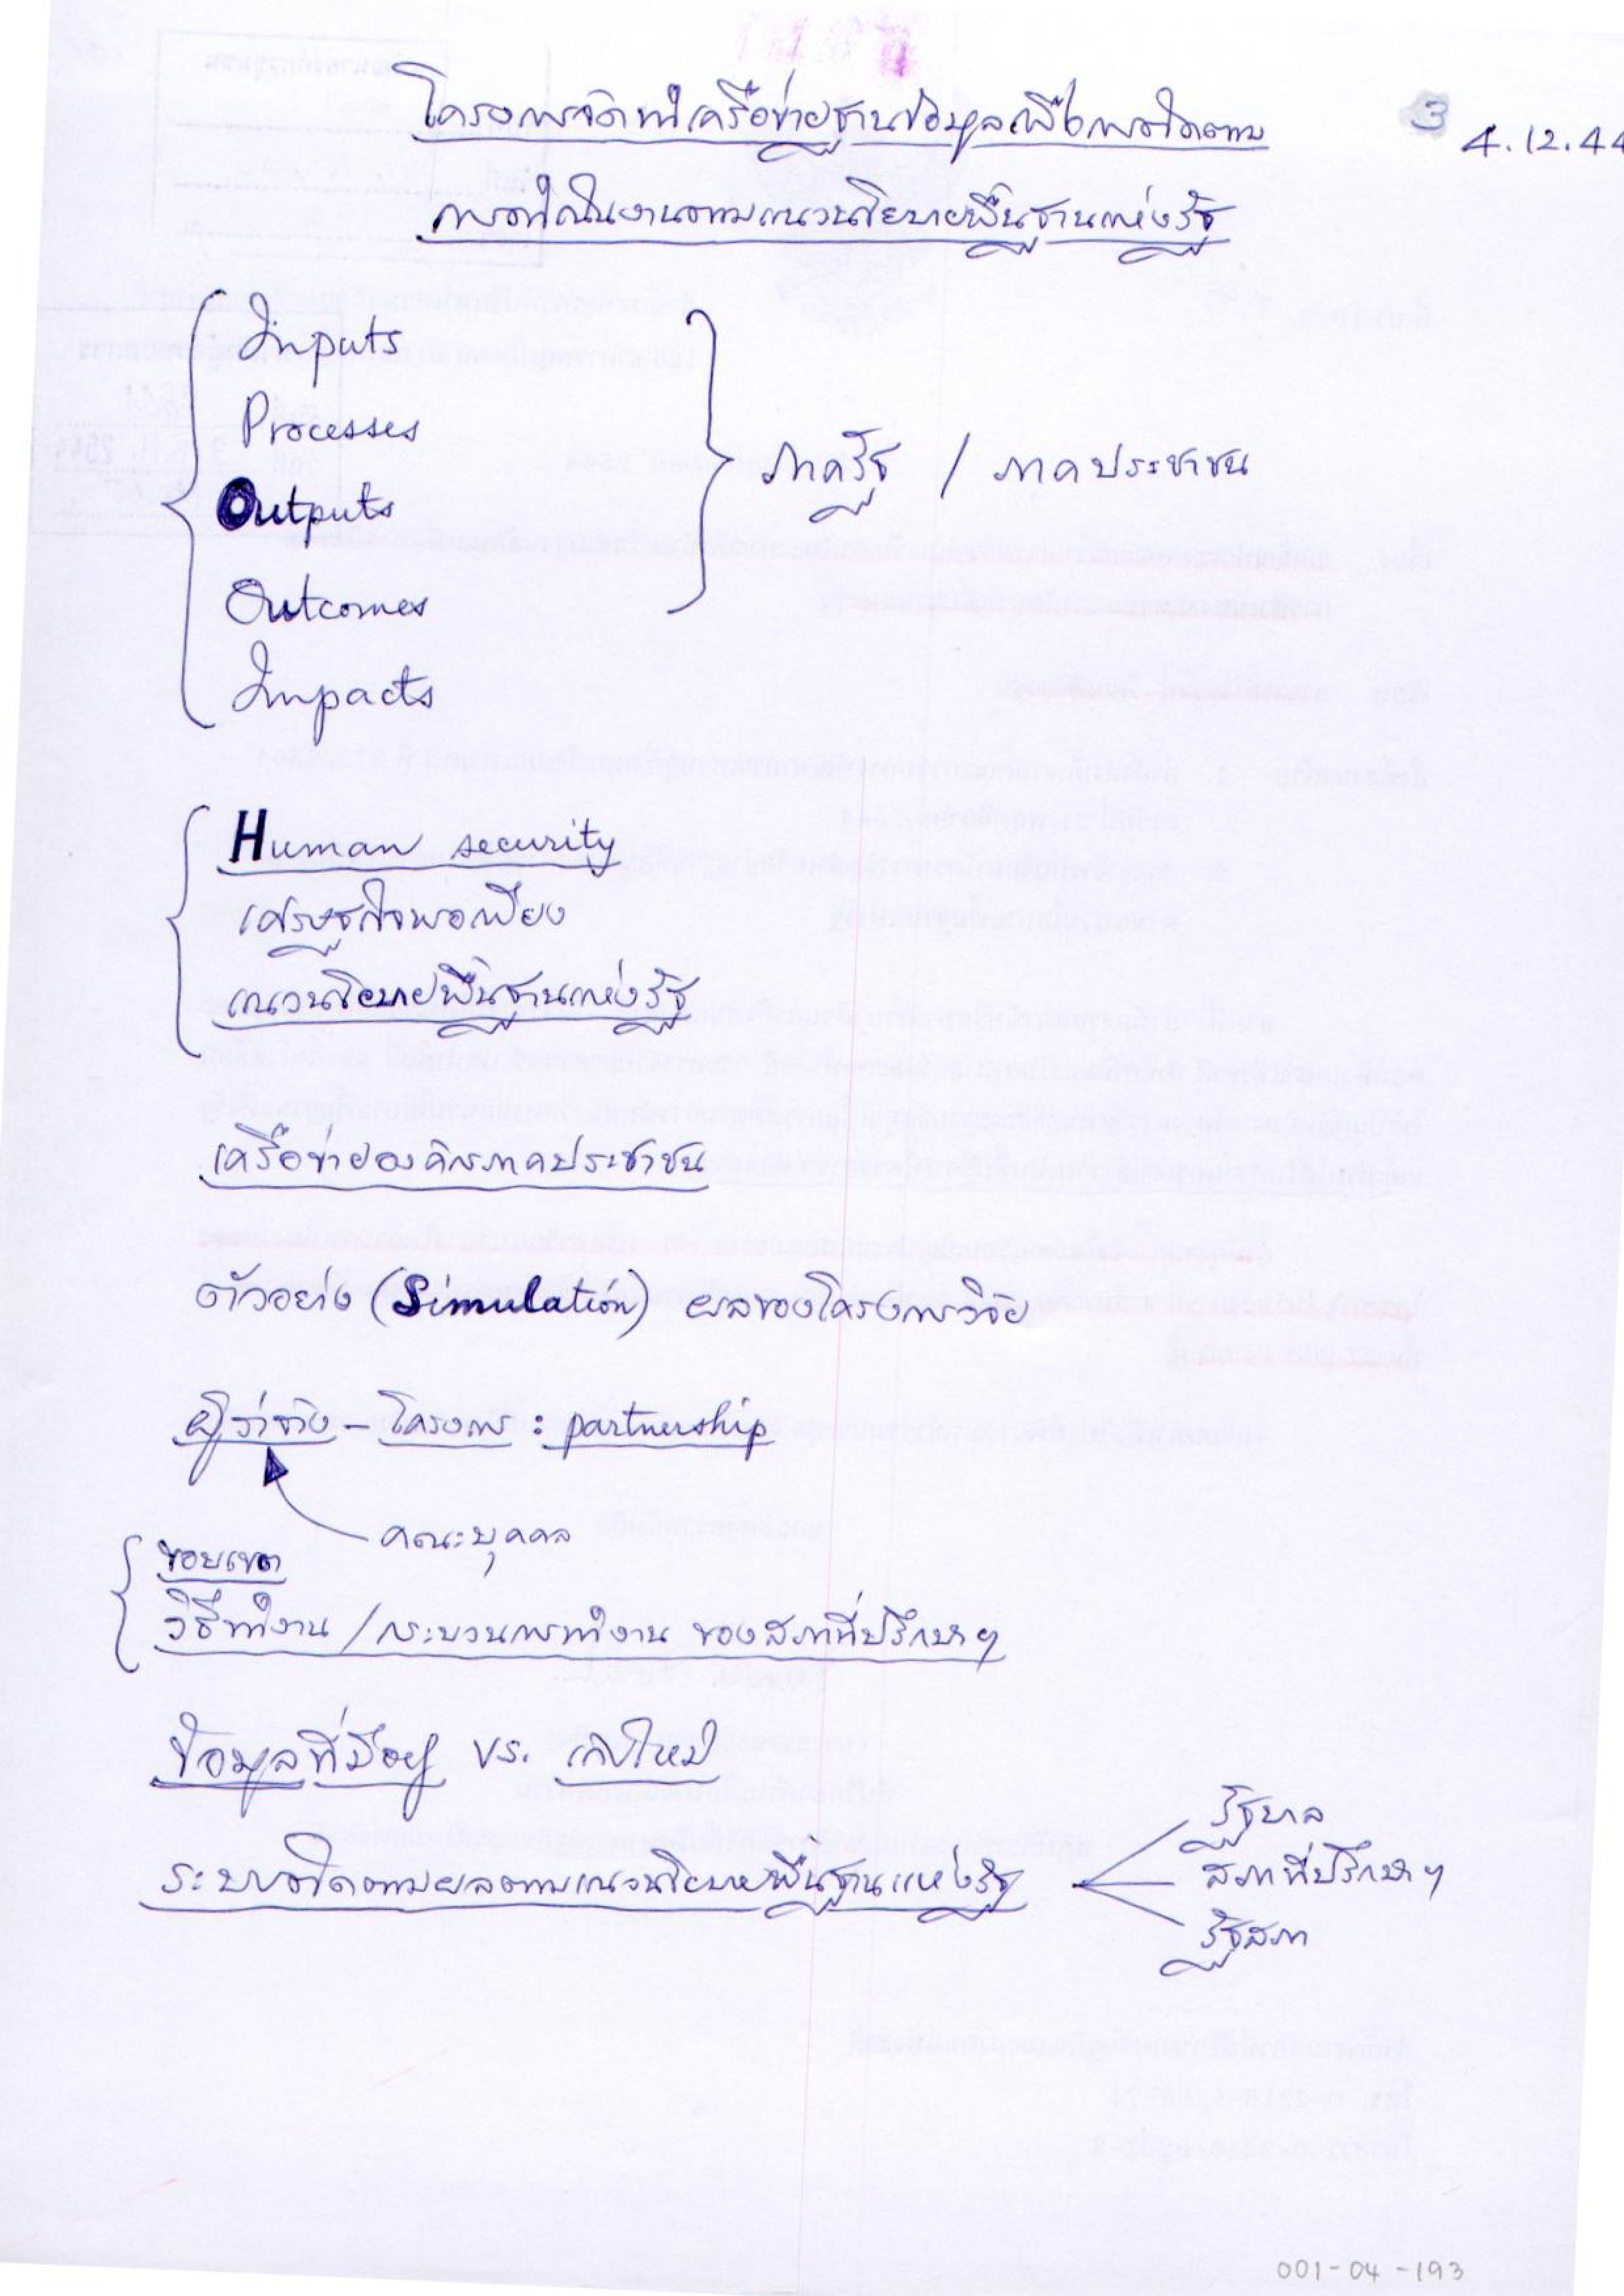 โครงการจัดทำเครือข่ายฐานข้อมูลเพื่อการติดตาม
3
4.12.44
การดำเนินงานตามแนวนโยบายพื้นฐานแห่งรัฐ
Inputs
Processes
Outputs
ภาครัฐ / ภาคประชาชน
Outcomes
Impacts
Human security
เศรษฐกิจพอเพียง
แนวนโยบายพื้นฐานแห่งรัฐ
เครือข่ายองค์กรภาคประชาชน
ตัวอย่าง (Simulation) ผลของโครงการวิจัย
ผู้ว่าจ้าง - โครงการ : partnership
คณะบุคคล
ขอบเขต
วิธีทำงาน / กระบวนการทำงาน ของสภาที่ปรึกษาฯ
ข้อมูลที่มีอยู่ vs. เก็บใหม่
ระบบติดตามผลตามแนวนโยบายพื้นฐานแห่งรัฐ
รัฐบาล
สภาที่ปรึกษาฯ
รัฐสภา
001-04-193